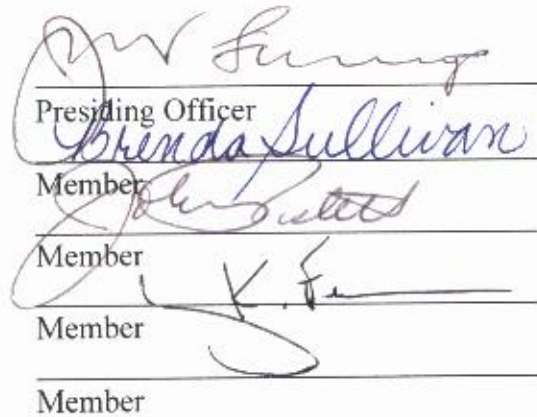 Presiding Officer
Brenda Sullivan
Member
John
Member
K.
Member
Member